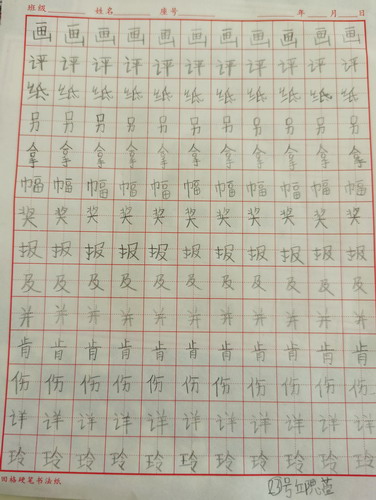 班级 姓名 座号 年 月 日
画 画 画 画 画 画 画 画 画 画 画
评 评 评 评 评 评 评 评 评 评 评
纸 纸 纸 纸 纸 纸 纸 纸 纸 纸 纸
另 另 另 另 另 另 另 另 另 另 另
拿 拿 拿 拿 拿 拿 拿 拿 拿 拿 拿
幅 幅 幅 幅 幅 幅 幅 幅 幅 幅 幅
奖 奖 奖 奖 奖 奖 奖 奖 奖 奖 奖
报 报 报 报 报 报 报 报 报 报 报
及 及 及 及 及 及 及 及 及 及 及
并 并 并 并 并 并 并 并 并 并 并
肯 肯 肯 肯 肯 肯 肯 肯 肯 肯 肯
伤 伤 伤 伤 伤 伤 伤 伤 伤 伤 伤
详 详 详 详 详 详 详 详 详 详 详
玲 玲 玲 玲 玲 玲 玲 玲 玲 玲 玲
田格硬笔书法纸
23号